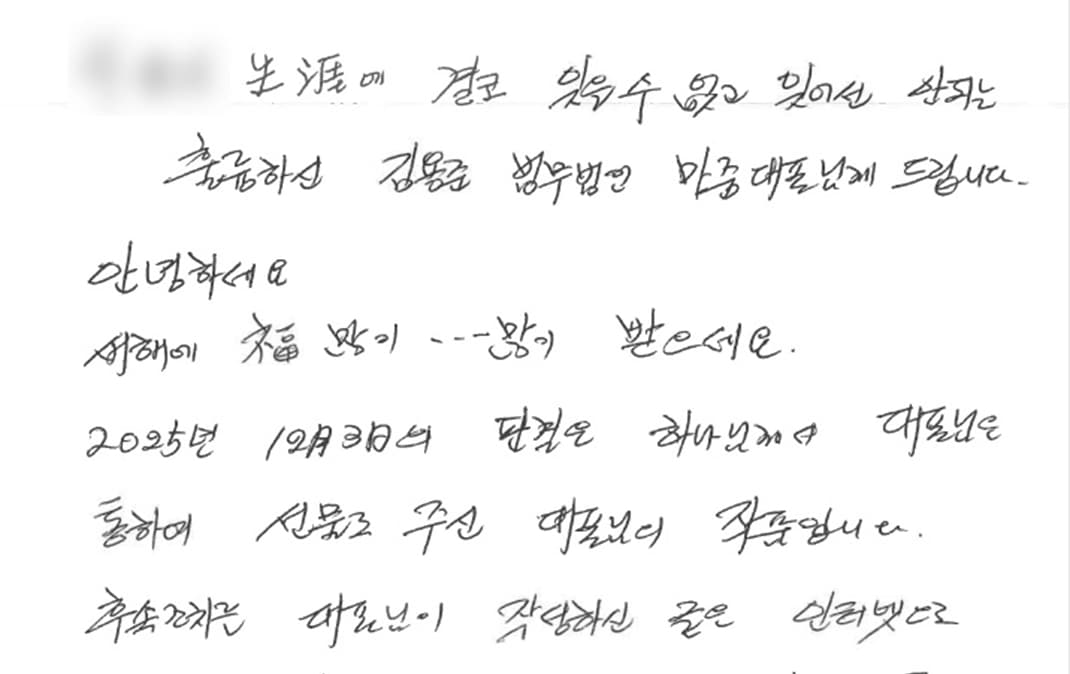 生涯에 결코 잊을수 없고 잊어선 안되는
훌륭하신 김용준 법무법인 마중대표님께 드립니다.
안녕하세요
새해에 福 많이 ---많이 받으세요.
2025년 12月3日의 판결은 하나님께서 대표님을
통하여 선물로 주신 대표님의 작품입니다.
후속조치는 대표님이 작성하신 글은 인터넷으로